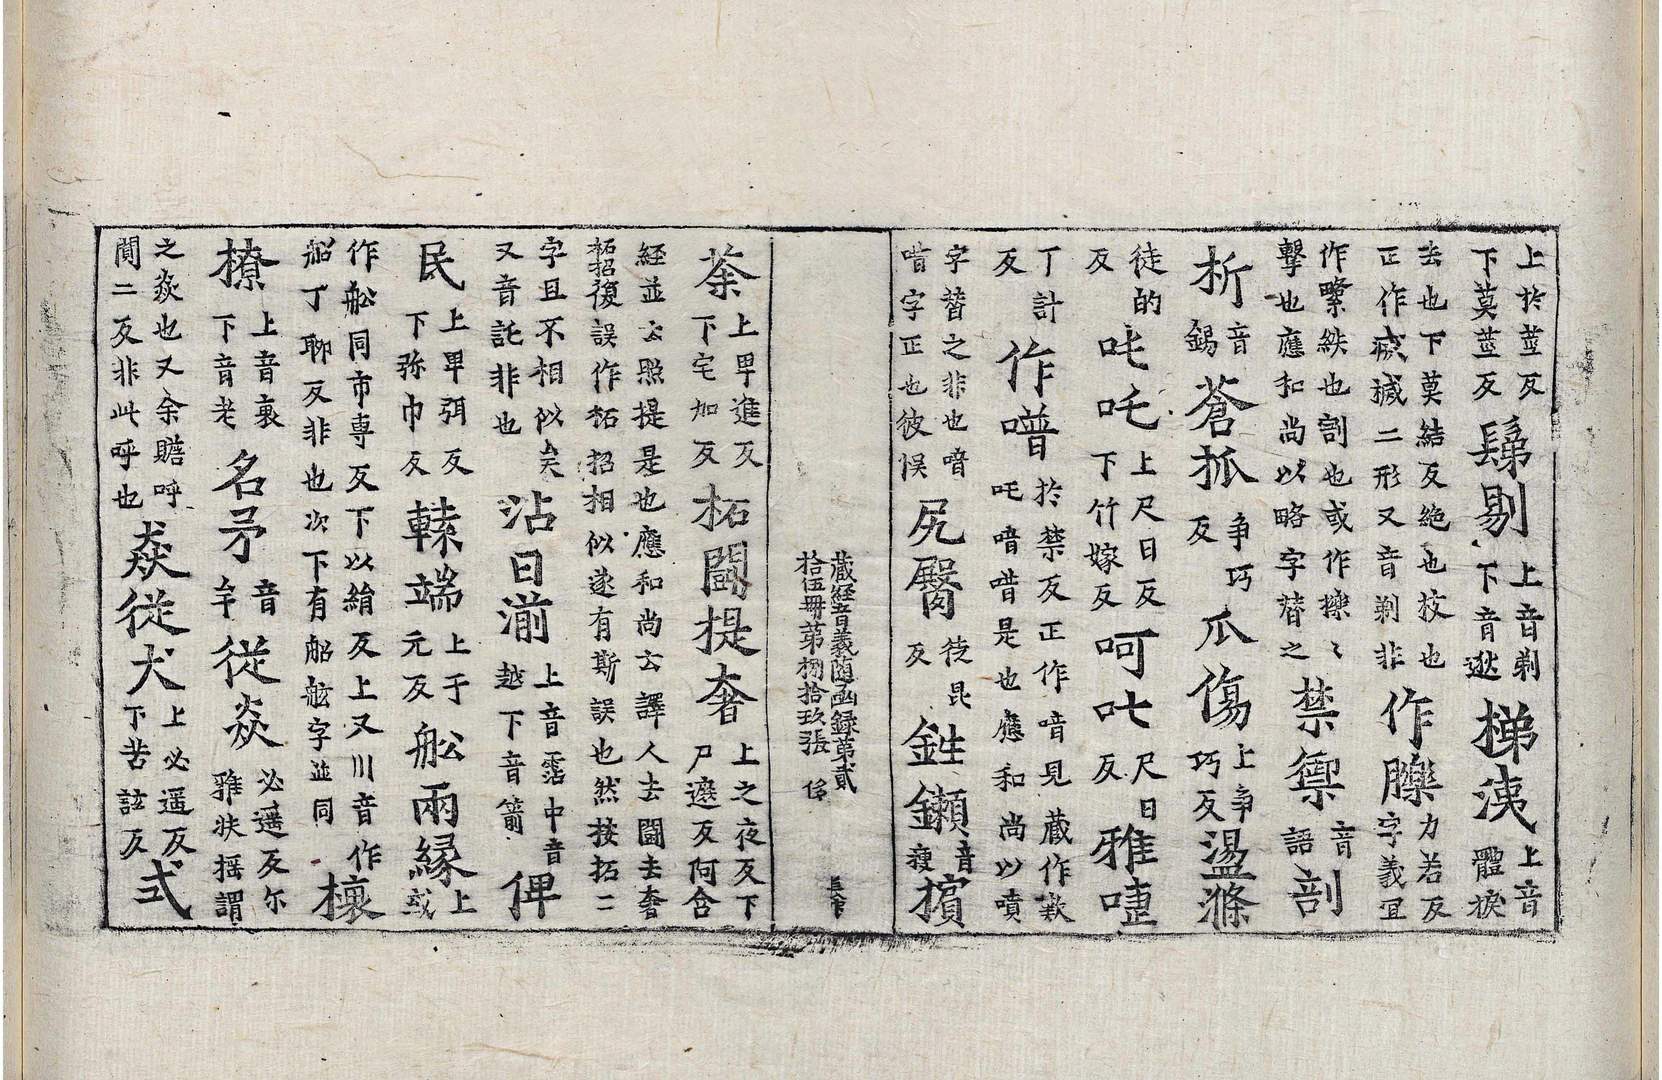 上於莖反下莫莖反鬀剔上音剃下音逖梯洟上音體㨑
去也下莫結反絶也㧞也正作烕穢二形又音剃非作䑎力若反字義冝
作𦂶紩也割也或作㩧〻擊也應和尚以略字替之禁禦音語剖
析音錫蒼抓爭巧反爪傷上爭巧反盪滌
徒的反吒吒上尺日反下竹嫁反呵叱尺日反雅㖶
丁計反作噆於禁反正作喑見藏作歎吒喑唶是也應和尚以噴
字替之非也喑唶字正也彼悮尻臀徒昆反鉎鏉音瘦擯
藏經音義隨函録第貳拾伍冊第捌拾玖張
荼上卑進反下宅加反柘鬪提奢上之夜反下尸遮反阿含
經並云照提是也應和尚云譯人去鬪去奢柘招復誤作柘招相似遂有斯誤也然按拓二
字且不相似矣又音託非也沾日湔上音霑中音越下音箭俾
民上卑弭反下弥巾反轅端上于元反舩兩縁上或
作舩同市專反下以絹反上又川音作船丁聊反非也次下有䑠舷字並同榱
橑上音衰下音老名矛音牟従焱必遥反尓雅扶揺謂
之焱也又余贍呼閴二反非此呼也猋従犬上必遥反下苦泫反式